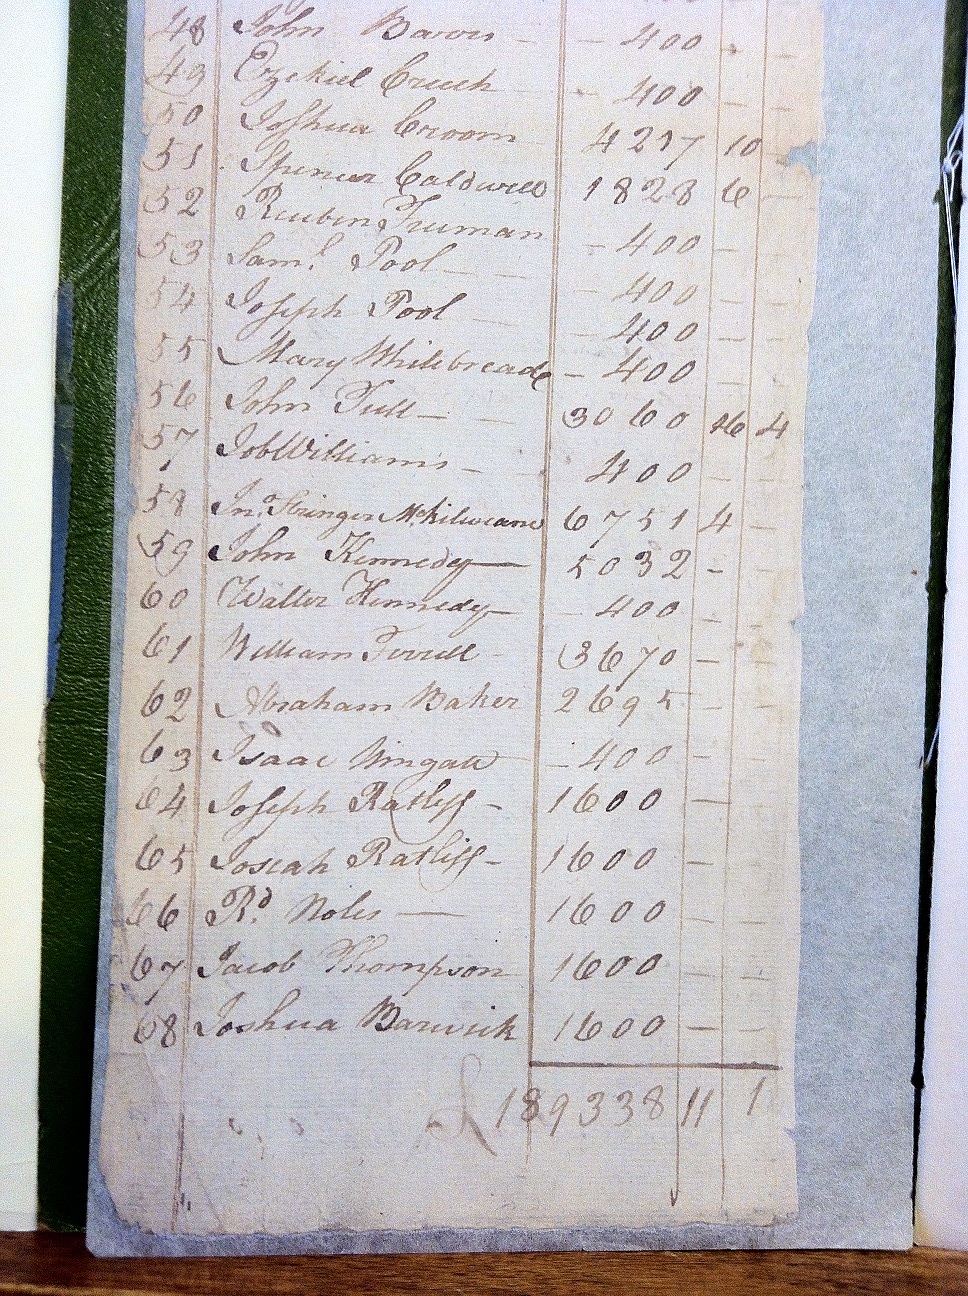 48 John Barws - - 400 - -
49 Ezekiel Creech - 400 - -
50 Joshua Croom 4217 10 -
51 Spencer Caldwell 1828 6 -
52 Reuben Truman - 400 - -
53 Saml. Pool - - 400 - -
54 Joseph Pool - - 400 - -
55 Mary Whitebreade - 400 - -
56 John Tull - - 3060 16 4
57 Job Williams - 400 - -
58 Jno. Stringer McKilweane 6751 4 -
59 John Kennedy - 5032 - -
60 Walter Kennedy - 400 - -
61 William Terrell - 3670 - -
62 Abraham Baker 2695 - -
63 Isaac Wingate - 400 - -
64 Joseph Ratliff - 1600 - -
65 Josiah Ratliff - 1600 - -
66 Rd. Noles - 1600 - -
67 Jacob Thompson 1600 - -
68 Joshua Barwick 1600 - -
£ 189338 11 1